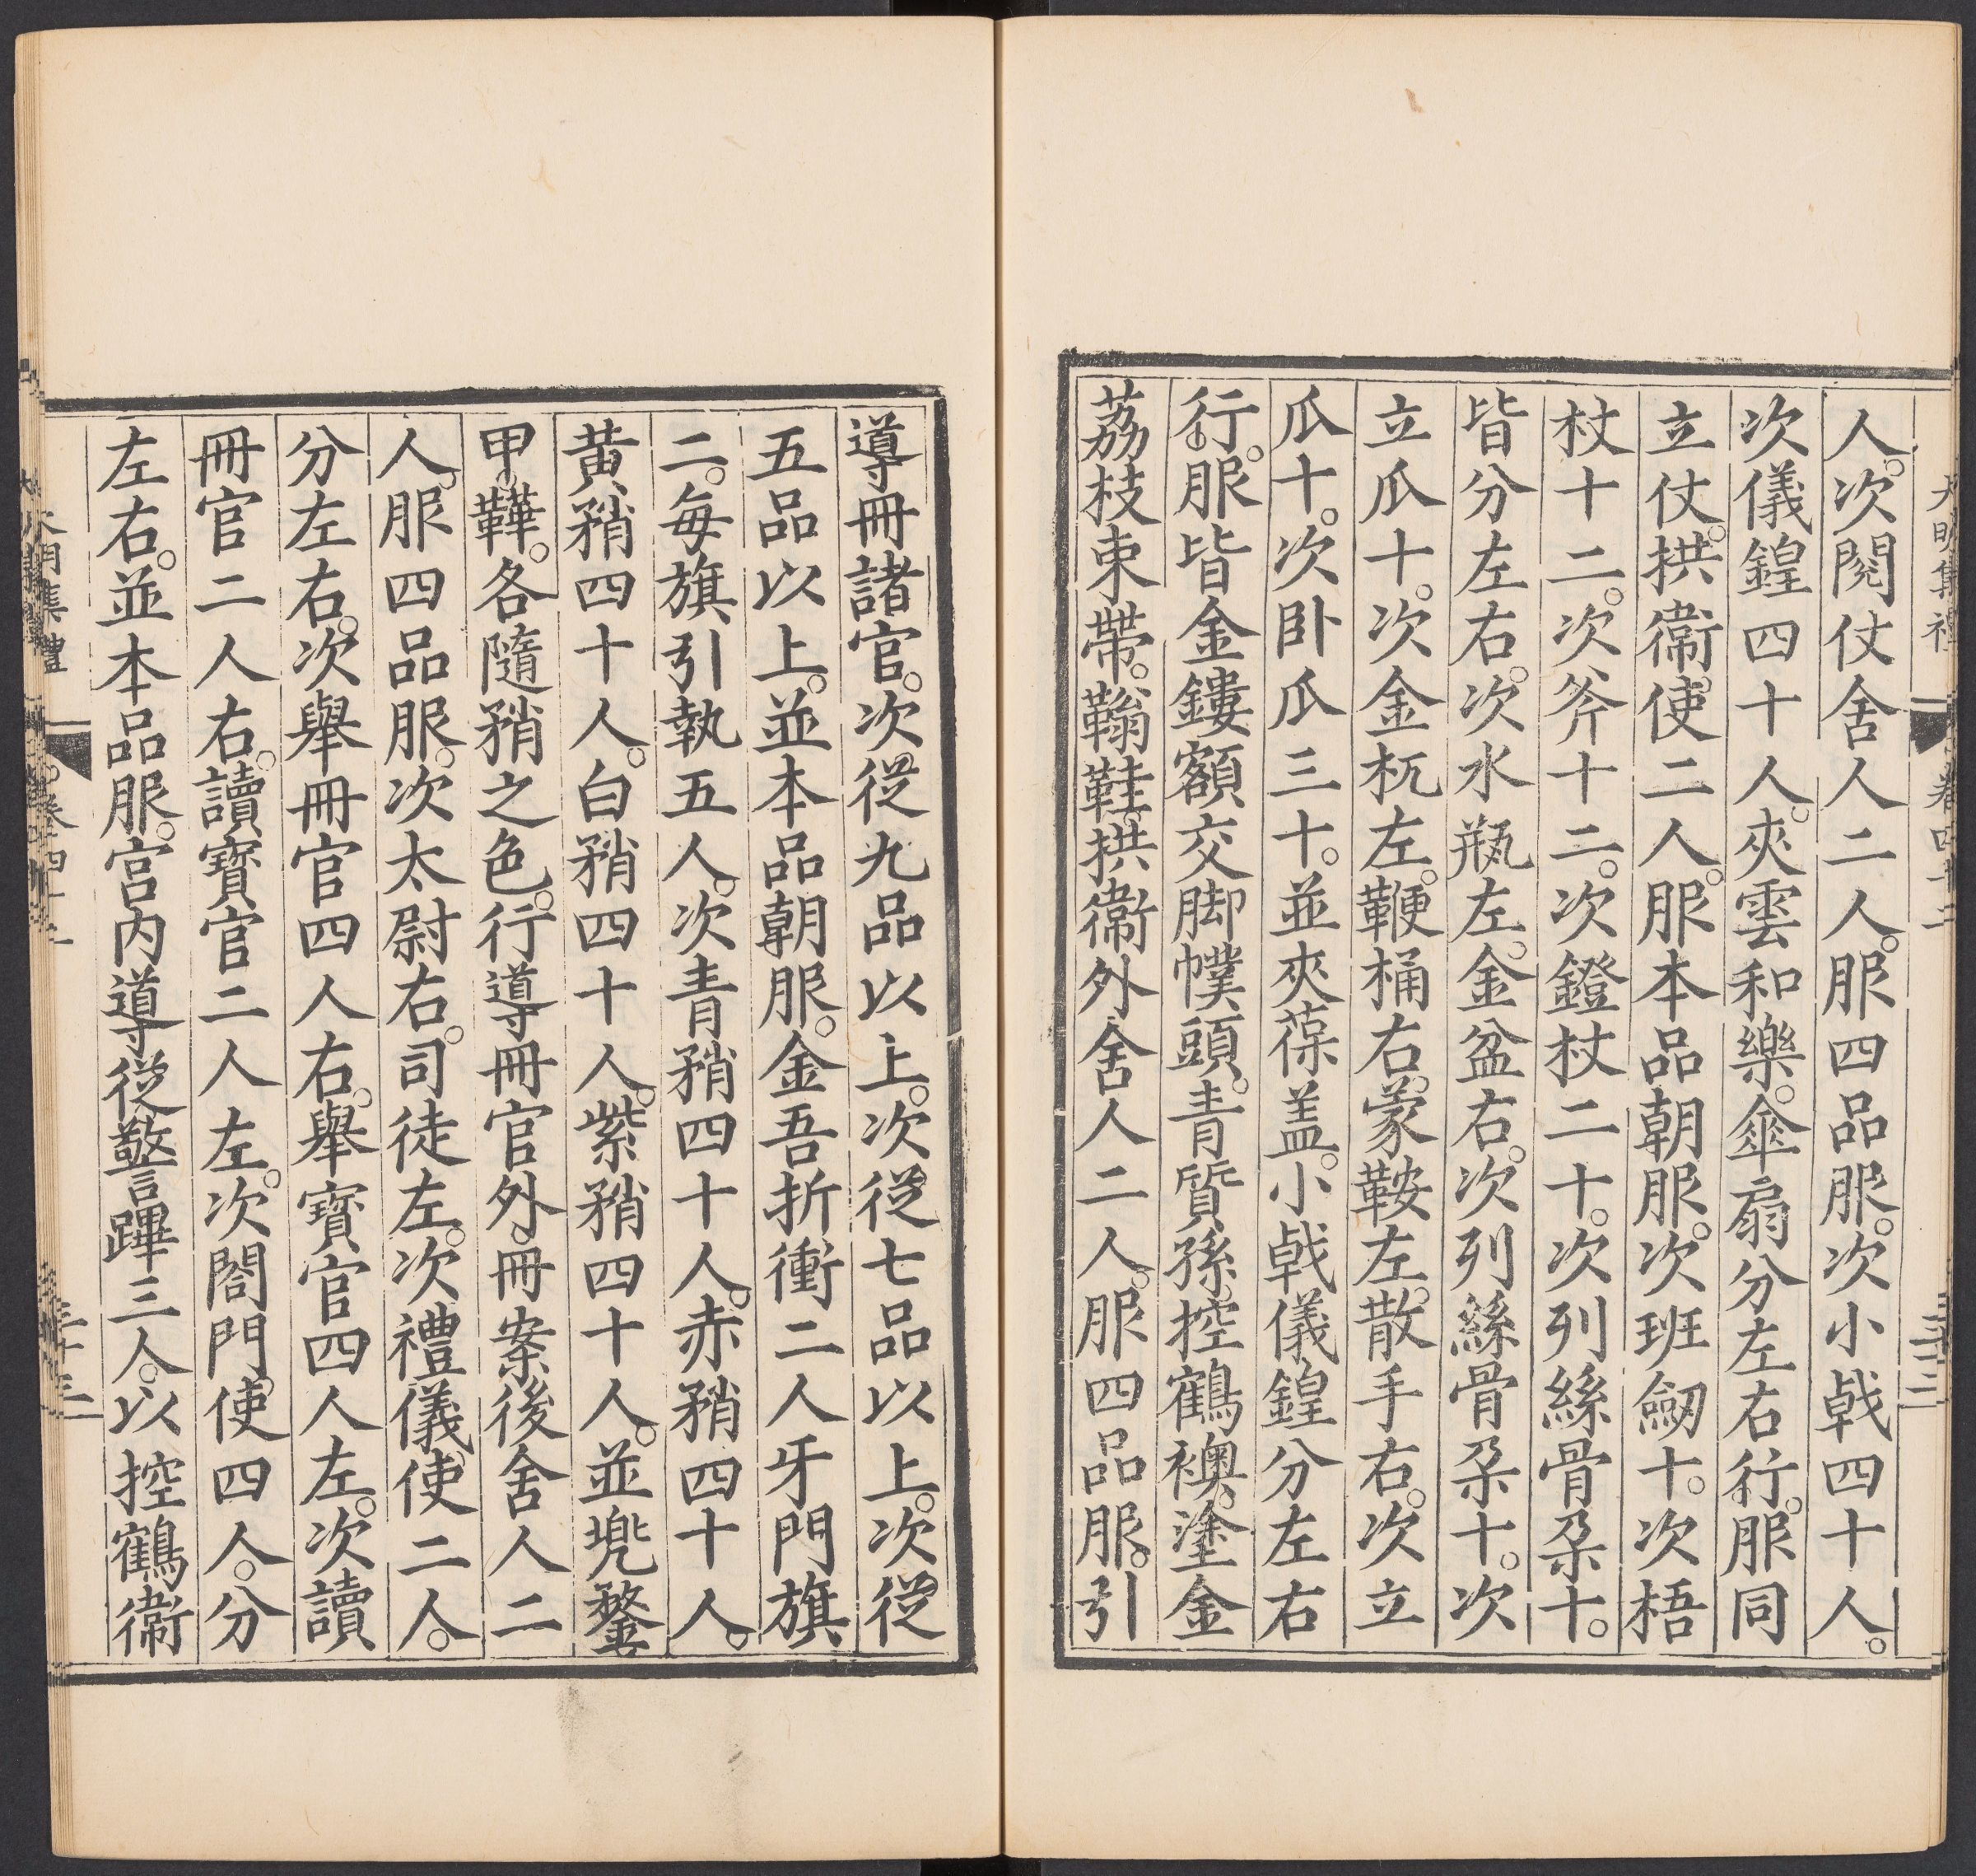 人。次閱仗舍人二人。服四品服。次小戟四十人。
次儀鍠四十人。夾雲和樂。傘扇分左右行。服同
立仗。拱衛使二人。服本品朝服。次班劒十。次梧
杖十二。次斧十二。次鐙杖二十。次列絲骨朶十。
皆分左右。次水瓶左。金盆右。次列絲骨朶十。次
立瓜十。次金杌左。鞭桶右。蒙鞍左。散手右。次立
瓜十。次卧瓜三十。並夾葆盖。小戟儀鍠分左右
行。服皆金鏤額交脚幞頭。青質孫控鶴襖。塗金
荔枝束帶。鞝鞋。拱衛外舍人二人。服四品服。引
導冊諸官。次從九品以上。次從七品以上。次從
五品以上。並本品朝服。金吾折衝二人牙門旗
二。每旗引執五人。次青矟四十人。赤矟四十人。
黃矟四十人。白矟四十人。紫矟四十人。並兠鍪
甲鞾。各隨矟之色。行導冊官外。冊案後舍人二
人。服四品服。次太尉右。司徒左。次禮儀使二人。
分左右。次舉冊官四人右。舉寶官四人左。次讀
冊官二人右。讀寶官二人左。次閤門使四人。分
左右。並本品服。宮内導從警蹕三人。以控鶴衛